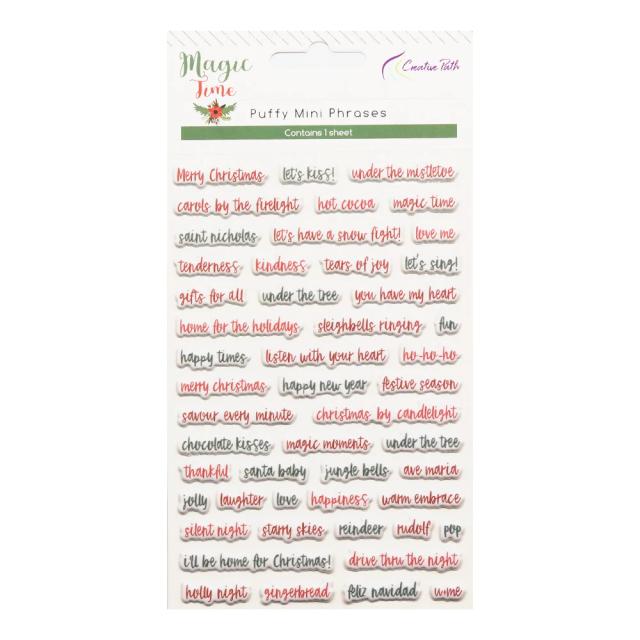 Magic
Time
Creative Path
Puffy Mini Phrases
Contains 1 sheet
Merry Christmas let's kiss! under the mistletoe
carols by the firelight hot cocoa magic time
saint nicholas let's have a snow fight! love me
tenderness kindness tears of joy let's sing!
gifts for all under the tree you have my heart
home for the holidays sleighbells ringing fun
happy times listen with your heart ho-ho-ho
merry christmas happy new year festive season
savour every minute christmas by candlelight
chocolate kisses magic moments under the tree
thankful santa baby jungle bells ave maria
jolly laughter love happiness warm embrace
silent night starry skies reindeer rudolf pop
i'll be home for Christmas! drive thru the night
holly night gingerbread feliz navidad